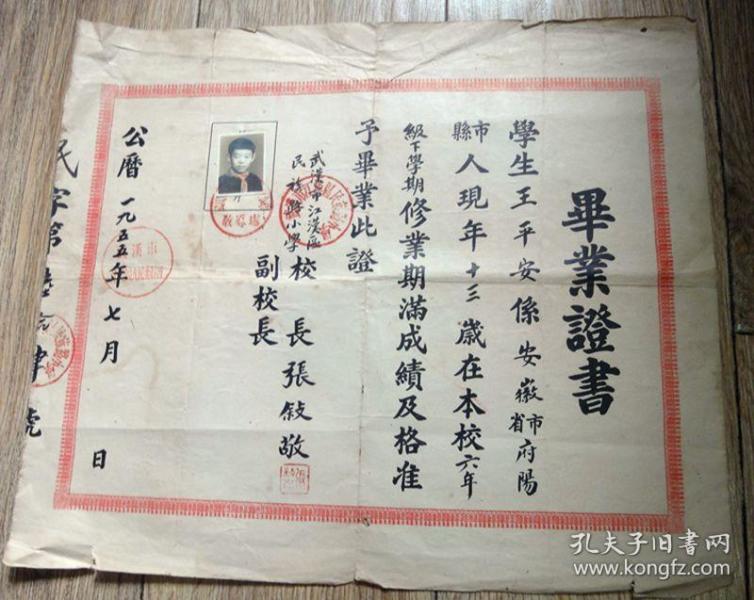 畢業證書
學生王平安係安徽省市府陽
縣市人現年十三歲在本校六年
級下學期修業期滿成績及格准
予畢業此證
武漢市江漢區
民族路小學
校長張敍敬
副校長
公曆一九五五年七月 日
民字第 肆號
孔夫子旧书网
www.kongfz.com